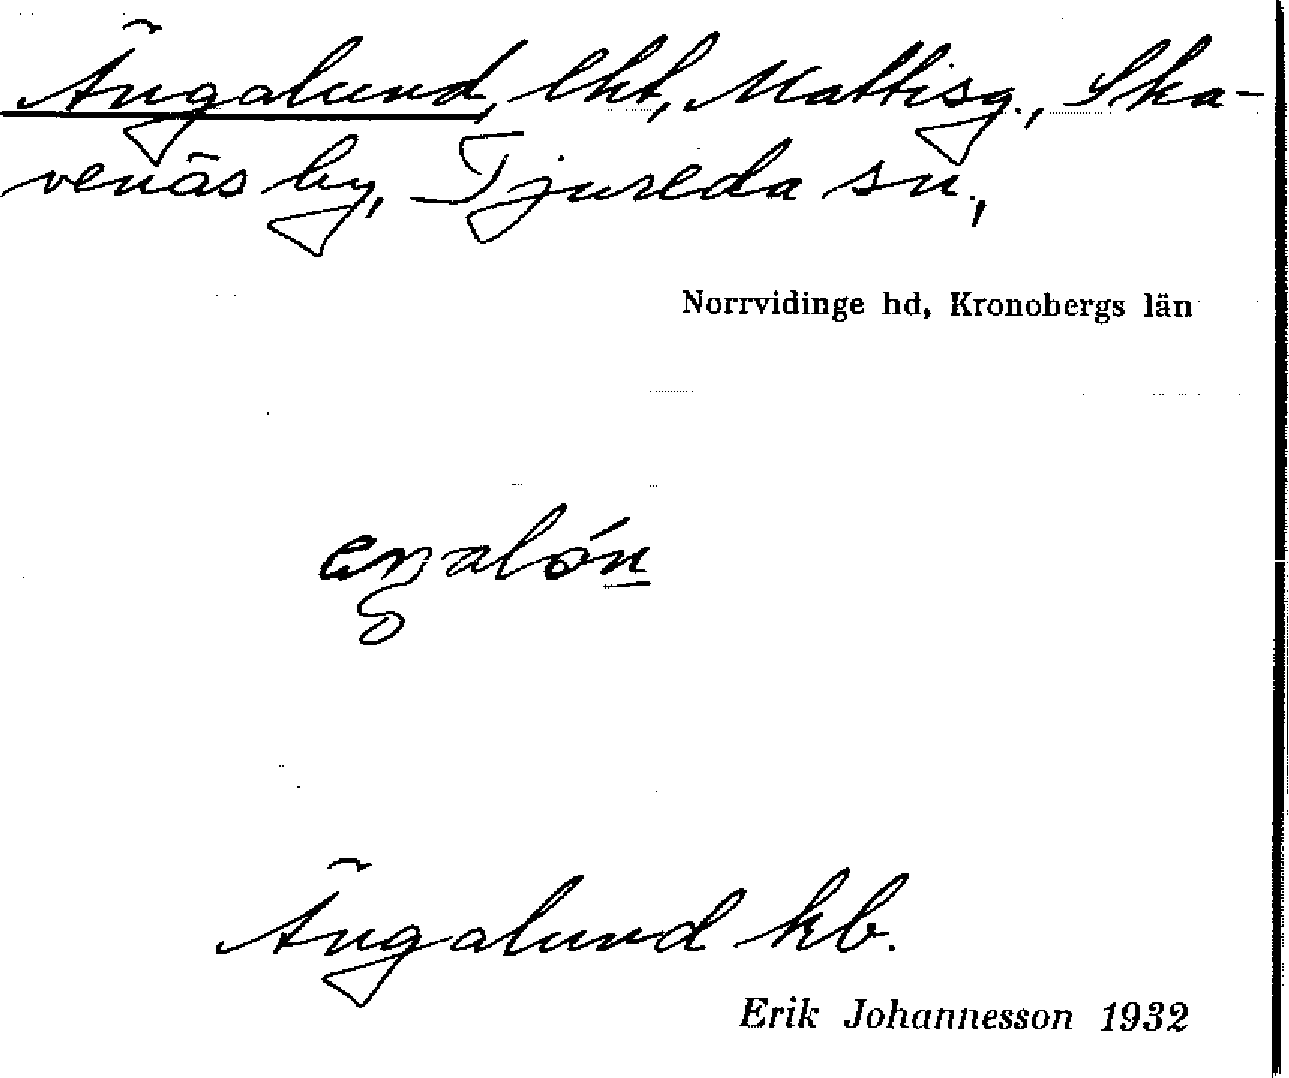 Ängalund, lht, Mattisg., Ska-
venäs by, Tjureda sn,
Norrvidinge hd, Kronobergs län
Ängalund kb.
Erik Johannesson 1932